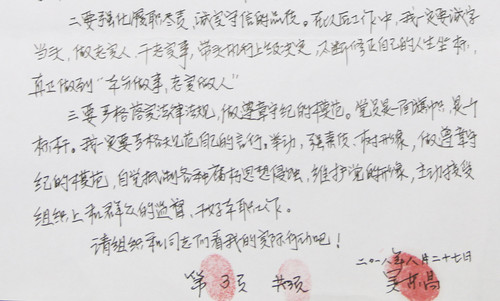 二要强化履职尽责，诚实守信的品质。在以后工作中，我一定要诚字
当头，做老实人、干老实事，带头执行上级决定，不断修正自己的人生坐标，
真正做到“本分做事，老实做人”
三要严格落实法律法规，做遵章守纪的模范。党员是一面旗帜，是个
标杆。我一定要严格规范自己的言行。举动，强素质、树形象，做遵章守
纪的模范，自觉抵制各种腐朽思想侵蚀，维护党的形象，主动接受
组织上和群众的监督，干好本职工作。
请组织和同志们看我的实际行动吧！
二〇一八年八月二十七日
第3页 共3页 吴 昌